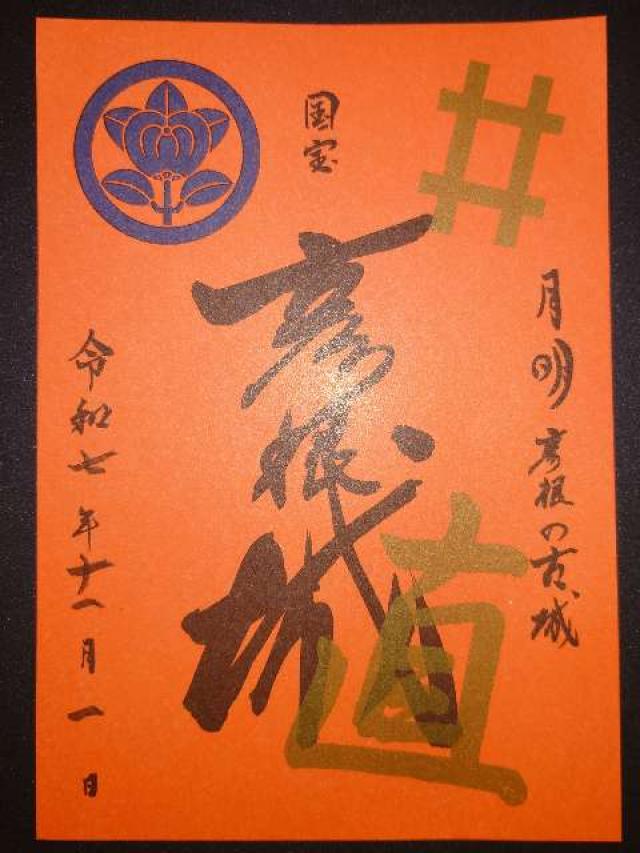 井
月明 彦根の古城
国宝
彦根城
直
令和七年十一月一日